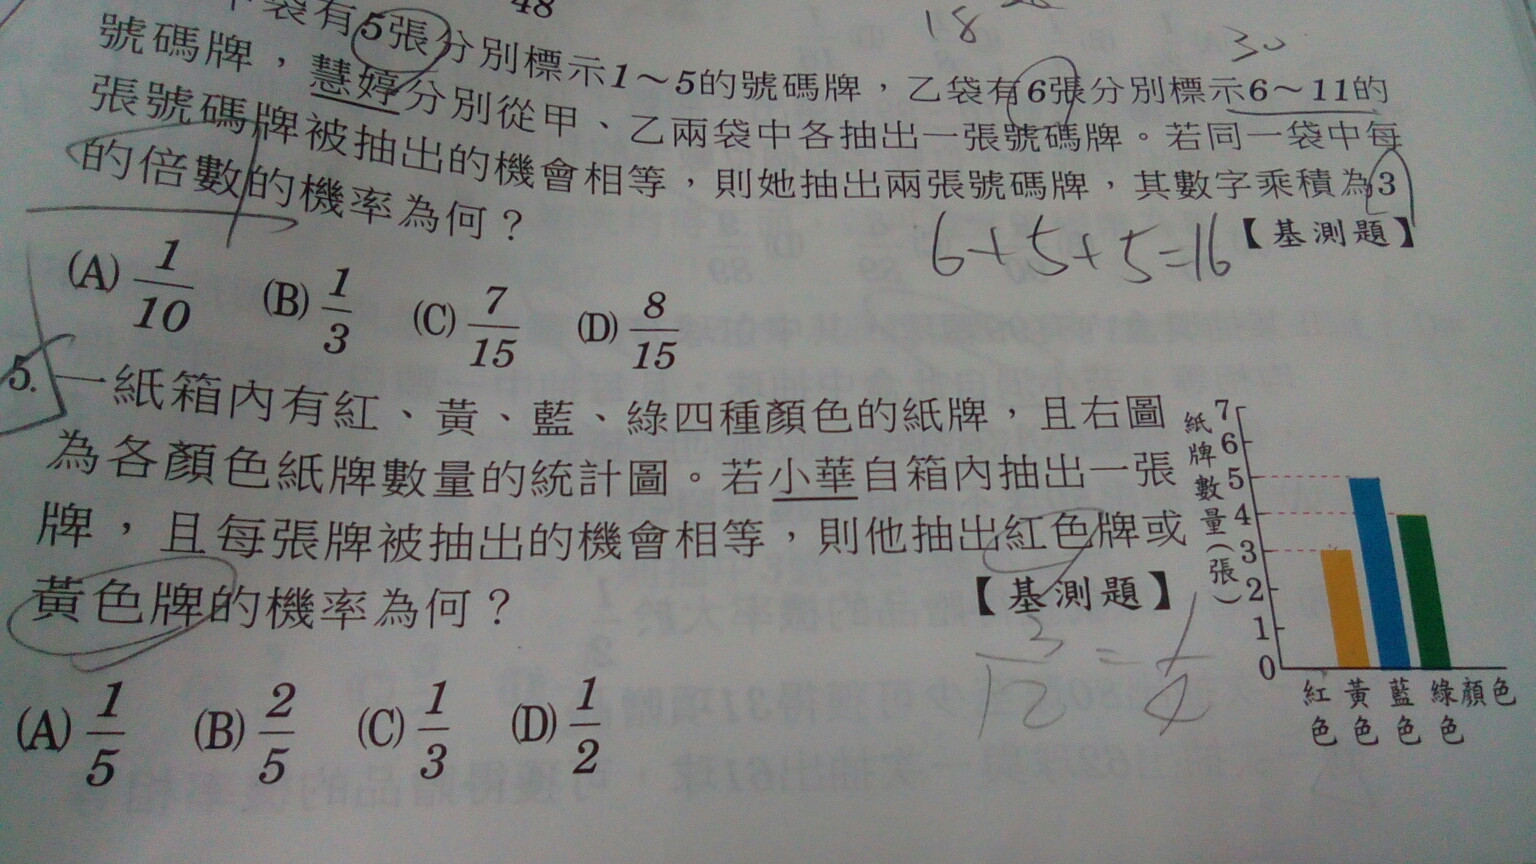 48
18
30
袋有5張分別標示1～5的號碼牌，乙袋有6張分別標示6～11的
號碼牌，慧婷分別從甲、乙兩袋中各抽出一張號碼牌。若同一袋中每
張號碼牌被抽出的機會相等，則她抽出兩張號碼牌，其數字乘積為3
的倍數的機率為何？
【基測題】
6+5+5=16
(A) 1/10 (B) 1/3 (C) 7/15 (D) 8/15
5. 一紙箱內有紅、黃、藍、綠四種顏色的紙牌，且右圖
為各顏色紙牌數量的統計圖。若小華自箱內抽出一張
牌，且每張牌被抽出的機會相等，則他抽出紅色牌或
黃色牌的機率為何？
【基測題】
3/12 = 1/4
(A) 1/5 (B) 2/5 (C) 1/3 (D) 1/2
紙牌數量(張)
7
6
5
4
3
2
1
0
紅色 黃色 藍色 綠色 顏色